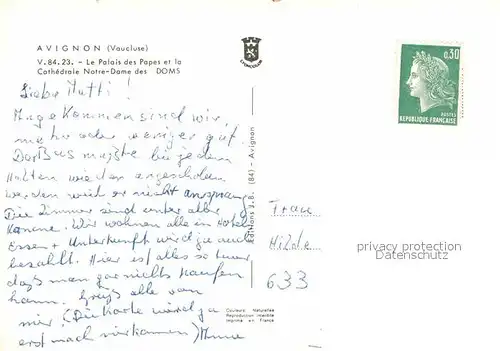 AVIGNON (Vaucluse)
V.84.23. - Le Palais des Papes et la
Cathédrale Notre-Dame des DOMS
LYONCOLOR
0,30
POSTES
REPUBLIQUE FRANÇAISE
Liebe Mutti!
Angekommen sind wir,
mehr oder weniger gut.
Der Bus mußte bei jedem
Halten wieder angeschoben
werden weil er nicht ansprang
Die Zimmer sind unter aller
Kanone. Wir wohnen alle in Hotels
Essen + Unterkunft wird ja auch
bezahlt. Hier ist alles so teuer
daß man gar nichts kaufen
kann. Grüß alle von
mir. (Die Karte wird ja
erst nach mir kommen)
Editions J.B. (84) - Avignon
Frau
Hilde
633
privacy protection
Datenschutz
Couleurs Naturelles
Reproduction interdite
Imprimé en France